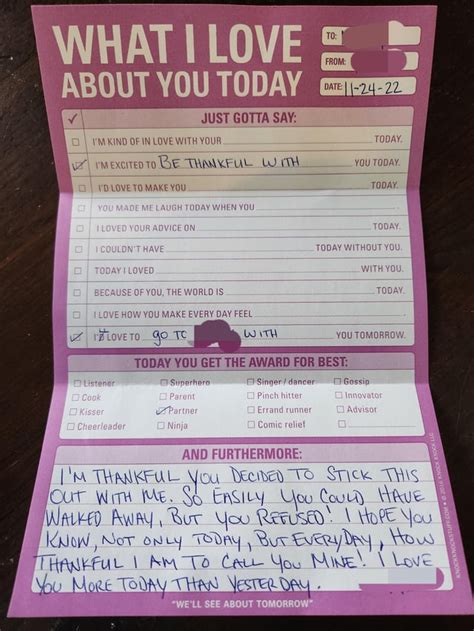 WHAT I LOVE
ABOUT YOU TODAY
TO:
FROM:
DATE: 11-24-22
✓ JUST GOTTA SAY:
I'M KIND OF IN LOVE WITH YOUR TODAY.
I'M EXCITED TO BE THANKFUL WITH YOU TODAY.
I'D LOVE TO MAKE YOU TODAY.
YOU MADE ME LAUGH TODAY WHEN YOU
I LOVED YOUR ADVICE ON TODAY.
I COULDN'T HAVE TODAY WITHOUT YOU.
TODAY I LOVED WITH YOU.
BECAUSE OF YOU, THE WORLD IS TODAY.
I LOVE HOW YOU MAKE EVERY DAY FEEL
LOVE TO go TO WITH YOU TOMORROW.
TODAY YOU GET THE AWARD FOR BEST:
Listener Superhero Singer / dancer Gossip
Cook Parent Pinch hitter Innovator
Kisser Partner Errand runner Advisor
Cheerleader Ninja Comic relief
AND FURTHERMORE:
I'M THANKFUL YOU DECIDED TO STICK THIS
OUT WITH ME. SO EASILY YOU COULD HAVE
WALKED AWAY, BUT YOU REFUSED! I HOPE YOU
KNOW, NOT ONLY TODAY, BUT EVERYDAY, HOW
THANKFUL I AM TO CALL YOU MINE! I LOVE
YOU MORE TODAY THAN YESTERDAY.
"WE'LL SEE ABOUT TOMORROW"
KNOCKKNOCKSTUFF.COM